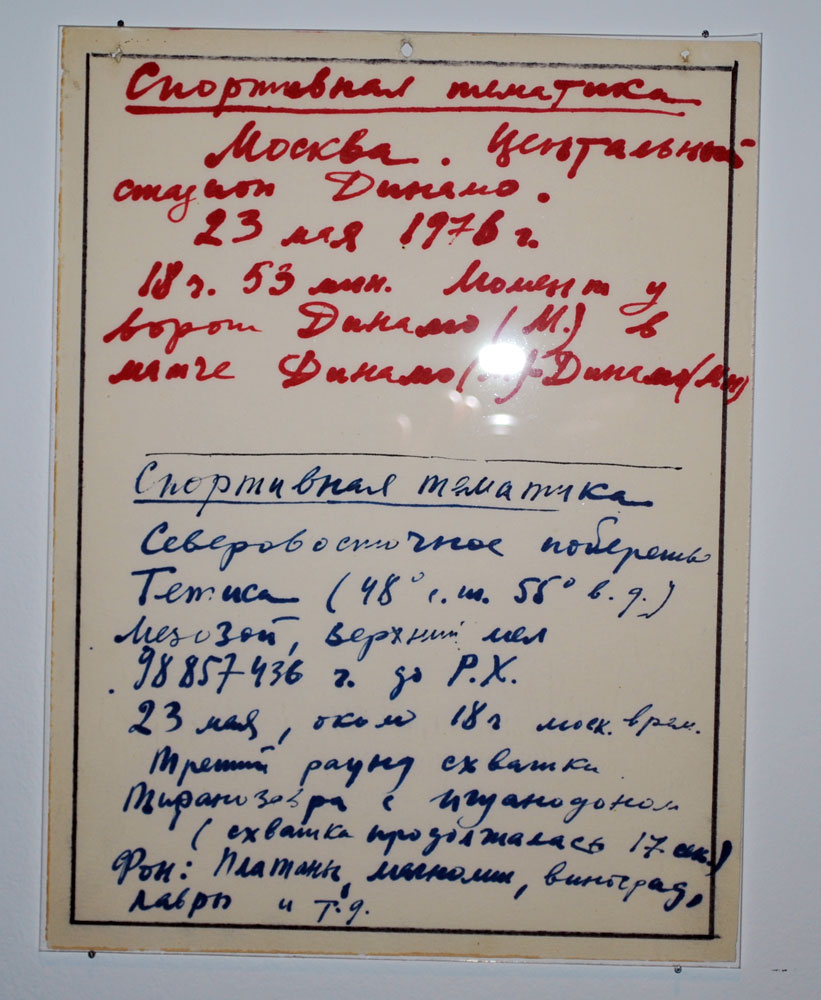 Спортивная тематика
Москва. Центральный
стадион Динамо.
23 мая 1976 г.
18 ч. 53 мин. Момент у
ворот Динамо (М.) в
матче Динамо Динамо (Мн)
Спортивная тематика
Северовосточное побережье
Тетиса (48° с.ш. 55° в.д.)
Мезозой, верхний мел
98857436 г. до Р.Х.
23 мая, около 18 ч моск. врем.
Третий раунд схватки
Тиранозавра с игуанодоном
(схватка продолжалась 17 сек.)
Фон: Платаны, магнолии, виноград,
лавры и т.д.